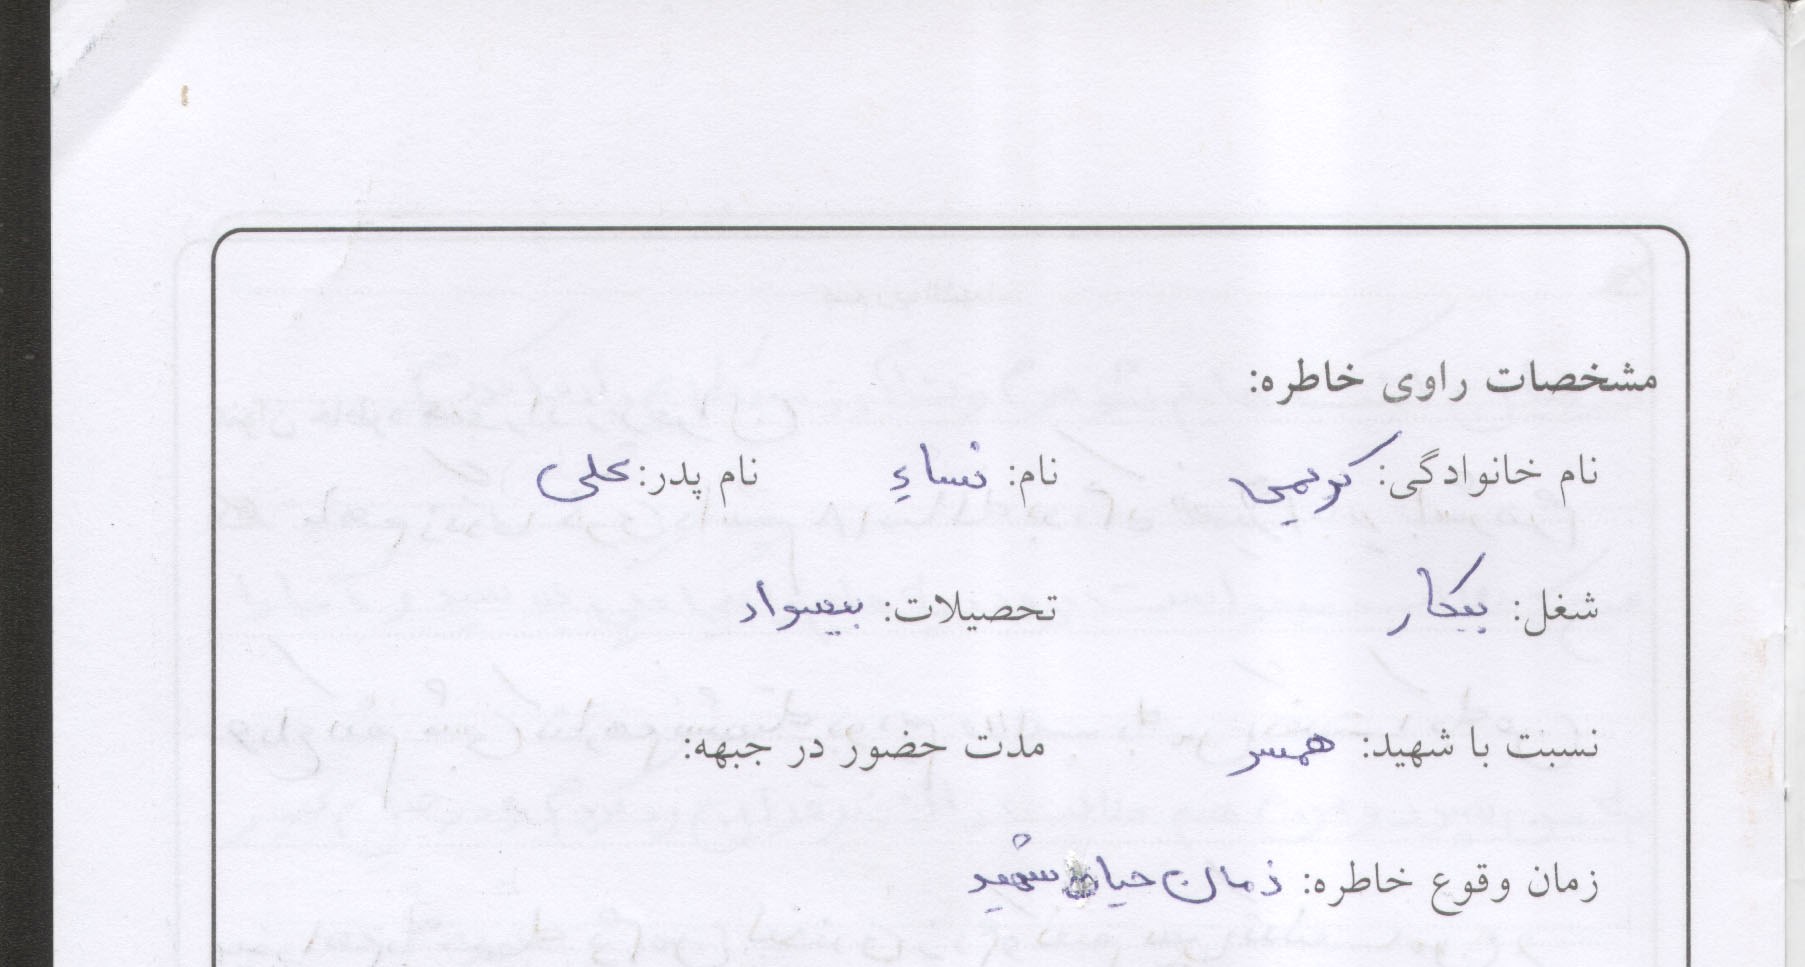 مشخصات راوی خاطره:
نام خانوادگی: کریمی نام: نساء نام پدر: علی
شغل: بیکار تحصیلات: بیسواد
نسبت با شهید: همسر مدت حضور در جبهه:
زمان وقوع خاطره: زمان حیات شهید